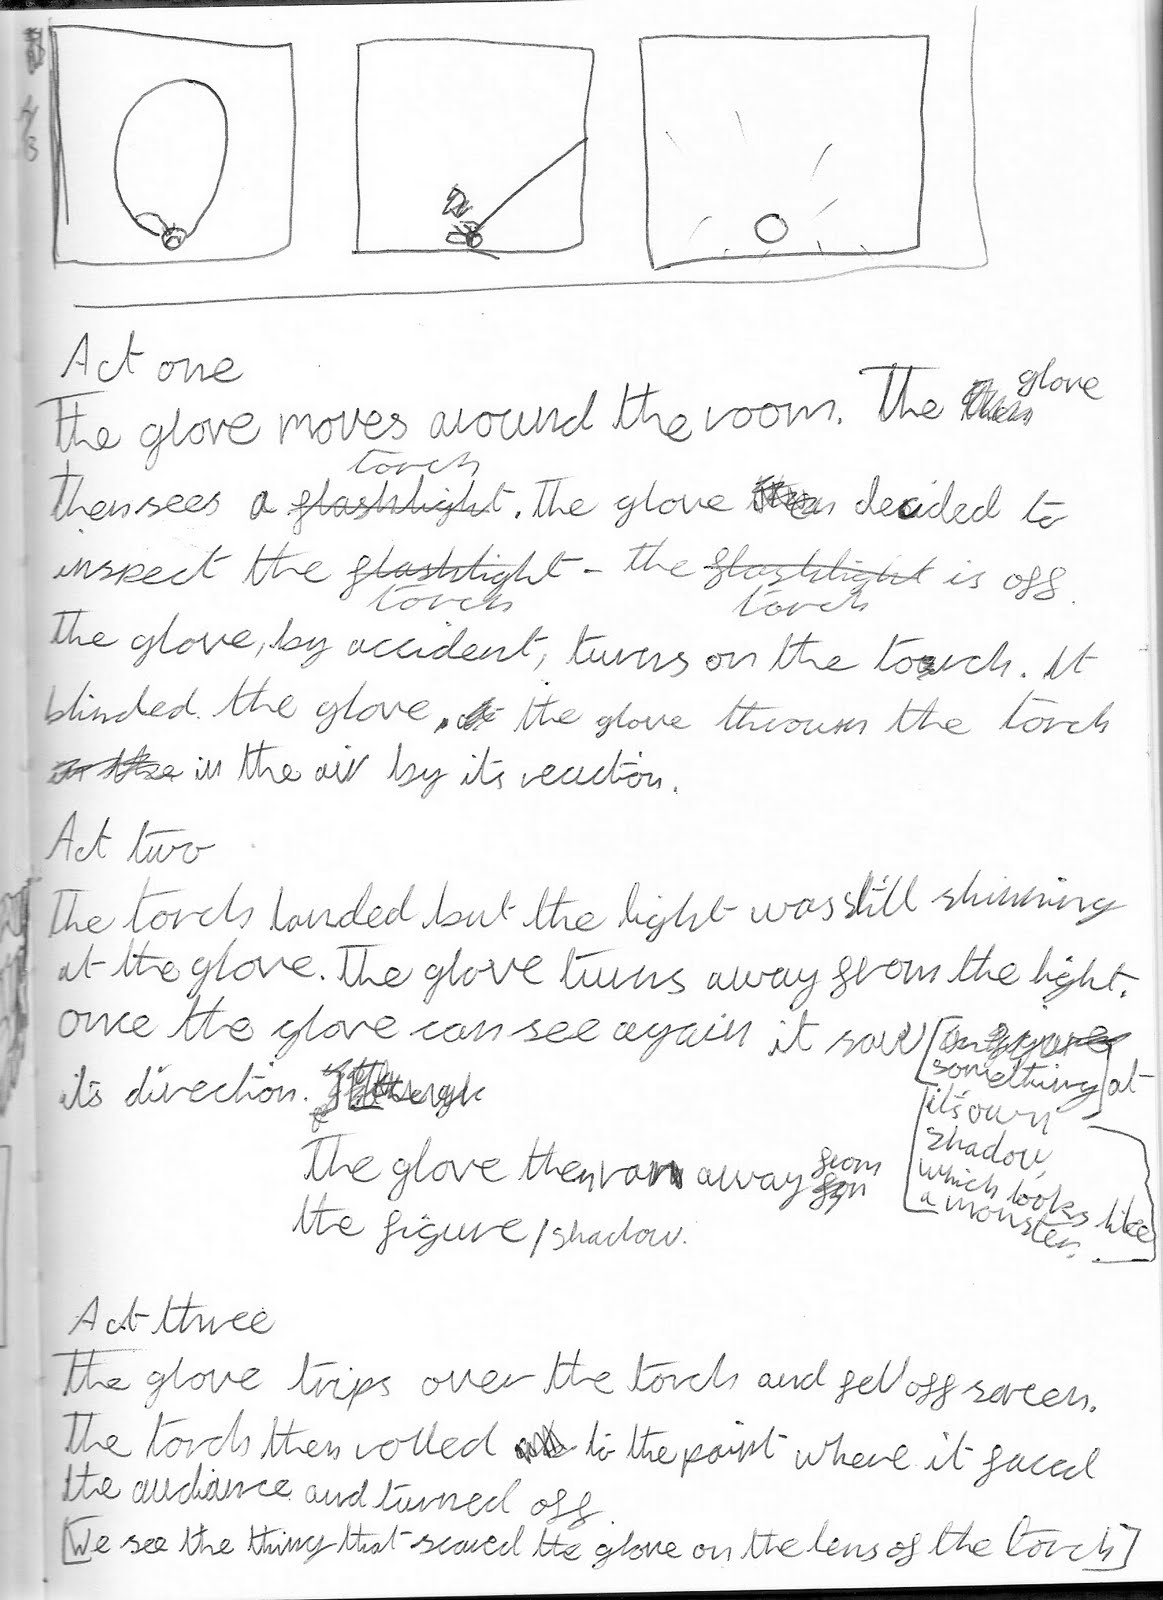 Act one
The glove moves around the room. The glove
then sees a flashlight torch. The glove then decided to
inspect the flashlight torch - the flashlight torch is off.
The glove, by accident, turns on the torch. It
blinded the glove, the glove throws the torch
in the air by its reaction.
Act two
The torch landed but the light was still shinning
at the glove. The glove turns away from the light.
Once the glove can see again it saw [something] at
its direction.
[it's own
shadow,
which looks like
a monster.]
The glove then ran away from
the figure/shadow.
Act three
The glove trips over the torch and fell off screen.
The torch then rolled to the point where it faced
the audiance and turned off.
[We see the thing that scared the glove on the lens of the torch]